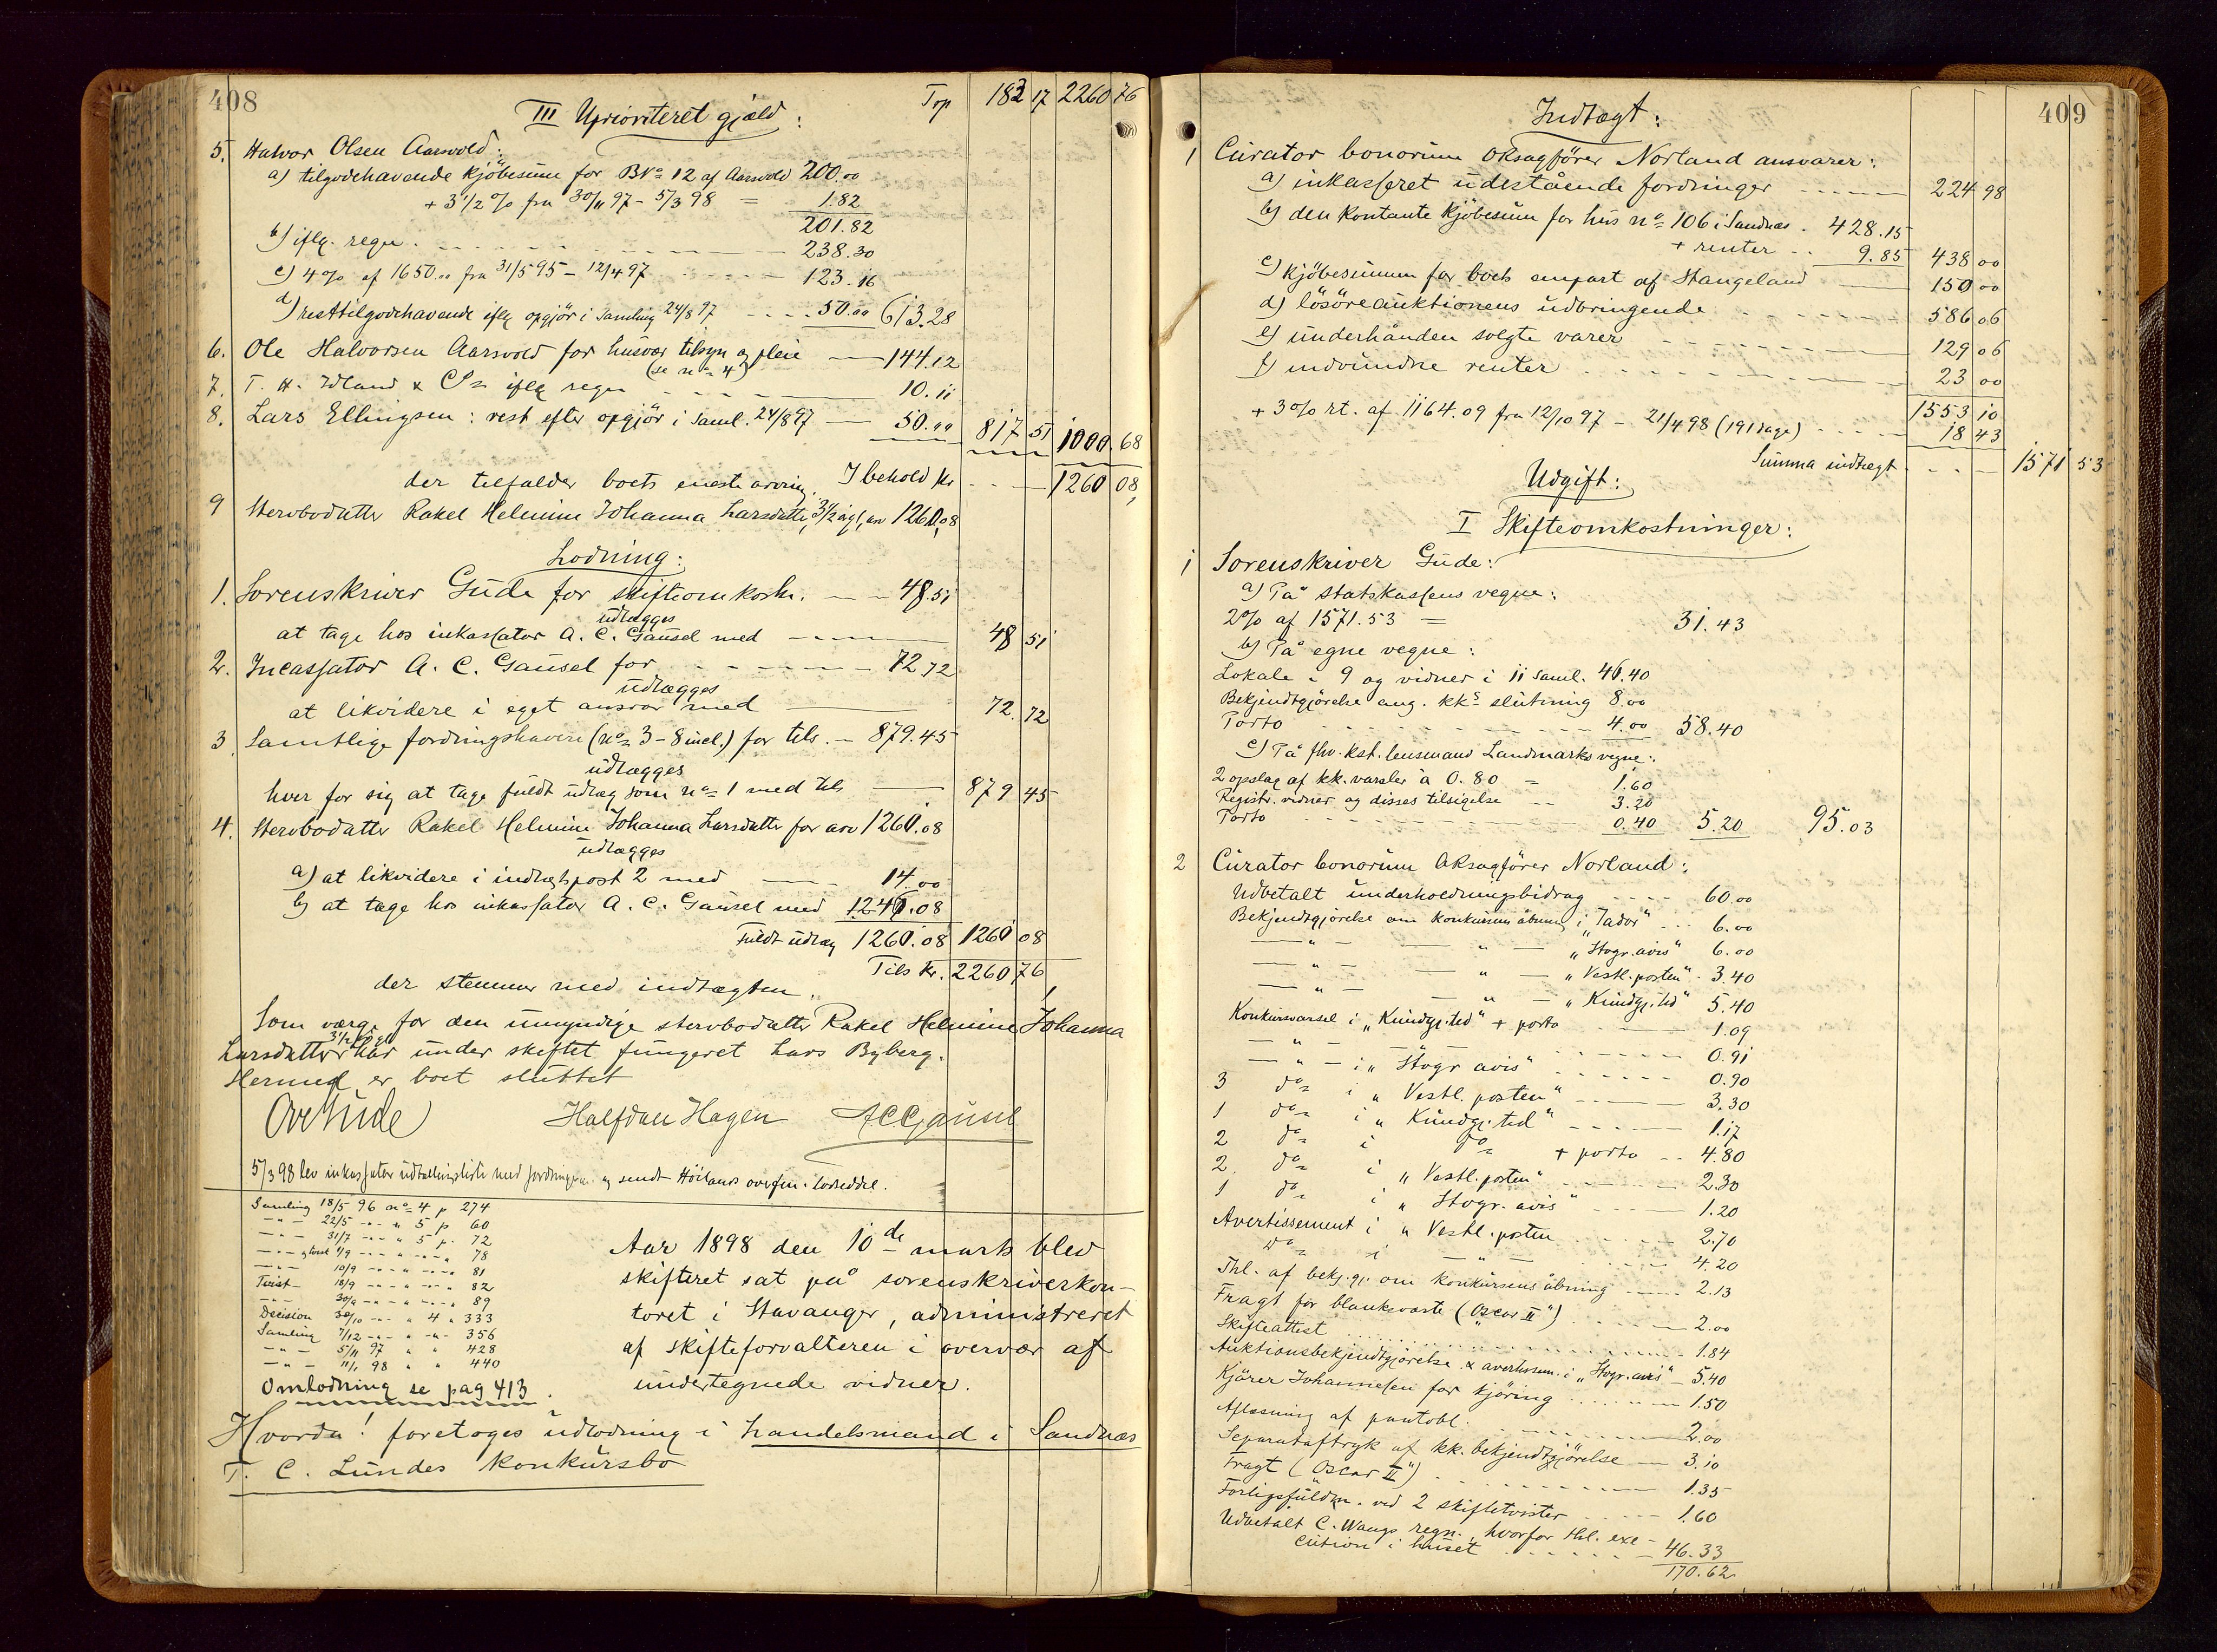 408
III Uprioriteret gjæld: Tsp 183 17 2260 76
5. Halvor Olsen Aarsvold:
a) tilgodehavende kjöbesum for BNo 12 af Aarsvold 200.00
+ 3 1/2 % fra 30/11 97 - 5/3 98 = 1.82
201.82
b) iflg. regn. 238.30
c) 4% af 1650.00 fra 31/5 95 - 12/4 97 123.16
d) resttilgodehavende iflg opgjör i samling 24/8 97 50.00 613.28
6. Ole Halvorsen Aarsvold for husvær tilsyn og pleie 144.12
(se no 4)
7. T. H. Idland & Co iflg regn 10.11
8. Lars Ellingsen: rest efter opgjör i saml. 24/8 97 50.00 817 51 1000.68
I behold kr 1260 08,
der tilfalder boets eneste arving
9 Stervbodatter Rakel Helmine Johanna Larsdatter, 3 1/2 år gl., arv 1260.08
Lodning:
1. Sorenskriver Gude for skifteomkostn. 48.51
udlægges
at tage hos inkassator A. C. Gausel med 48 51
2. Incassator A. C. Gausel for 72.72
udlægges
at likvidere i eget ansvar med 72.72
3 Samtlige fordringshavere (no 3-8 incl.) for tils. 879.45
udlægges
hver for sig at tage fuldt udlæg som no 1 med tils 879 45
4. Stervbodatter Rakel Helmine Johanna Larsdatter for arv 1260.08
udlægges
a) at likvidere i indtægtspost 2 med 14.00
b) at tage hos inkassator A. C. Gausel med 1246.08
Fuldt udlæg 1260.08 1260 08
Tils kr. 2260 76,
der stemmer med indtægten.
Som værge for den umyndige stervbodatter Rakel Helmine Johanna
Larsdatter 3 1/2 år gl har under skiftet fungeret Lars Byberg.
Hermed er boet sluttet
Ove Gude Halfdan Hagen A C Gausel
5/3 98 blev inkassator udtællingsliste med fordringerne og sendt Höilands overfm. lodseddel.
Samling 18/5 96 no 4 p 274
— " — 22/5 - " - " 5 p 60
— " — 31/7 - " - " 5 p. 72
— " — 1/9 - " - " - " - " 78
— " — 10/9 - " - " - " - " 81
Tvist 18/9 - " - " - " - " 82
— " — 30/9 - " - " - " - " 89
Decision 30/10 - " - " 4 " 333
Samling 7/12 - " - " - " - 356
— " — 5/11 97 " " 428
— " — 11/1 98 " " 440
Omlodning se pag 413.
Aar 1898 den 10de marts blev
skifteret sat på sorenskriverkon-
toret i Stavanger, administreret
af skifteforvalteren i overvær af
undertegnede vidner.
Hvorda! foretoges udlodning i handelsmand i Sandnæs
T. C. Lundes konkursbo
409
Indtægt:
1 Curator bonorum oksagförer Norland ansvarer:
a) inkasseret udestående fordringer 224 98
b) den kontante kjöbesum for hus no 106 i Sandnæs 428.15
+ renter 9.85 438 00
c) kjöbesummen for boets anpart af Stangeland 150 00
d) lösöreauktionens udbringende 586 06
e) underhånden solgte varer 129 06
f) indvundne renter 23 00
1553 10
+ 3% rt. af 1164.09 fra 12/10 97 - 21/4 98 (191 dage) 18 43
Summa indtægt 1571 53
Udgift:
I Skifteomkostninger:
1 Sorenskriver Gude:
a) På statskassens vegne:
2% af 1571.53 = 31.43
b) På egne vegne:
Lokale i 9 og vidner i 11 saml. 46.40
Bekjendtgjörelse ang. kks slutning 8.00
Porto 4.00 58.40
c) På fhv. kst. lensmand Landmarks vegne:
2 opslag af kk. varsler à 0.80 = 1.60
Registr. vidner og disses tilsigelse 3.20
Porto 0.40 5.20 95.03
2 Curator bonorum oksagförer Norland:
Udbetalt underholdningsbidrag 60.00
Bekjendtgjörelse om konkursens åbning i "Jadar" 6.00
— " — — " — "Stvgr. avis" 6.00
— " — — " — "Vestl. posten" 3.40
— " — — " — "Kundgj. tid" 5.40
Konkursvarsel i "Kundgj. tid" + porto 1.09
— " — 0.91
— " — i "Stvgr avis" 0.90
3 do i "Vestl. posten" 3.30
1 do i "Kundgj. tid" 1.17
2 do i do + porto 4.80
2 do i "Vestl. posten" 2.30
1 do i "Stvgr. avis" 1.20
Avertissement i "Vestl. posten 2.70
do i — " — 4.20
Thl. af bekj.gj. om konkursens åbning 2.13
Fragt for blanksværte ("Oscar II") 2.00
Skifteattest 1.84
Auktionsbekjendtgjörelse & avertissem. i "Stvgr. avis" 5.40
Kjörer Johannessen for kjöring 1.50
Aflæsning af pantobl. 2.00
Separataftryk af kk. bekjendtgjörelse 3.10
Fragt ("Oscar II") 1.35
Forligsfuldm. ved 2 skiftetvister 1.60
Udbetalt C. Waugs regn., hvorfor thl. exe-
cution i huset 46.33
170.62